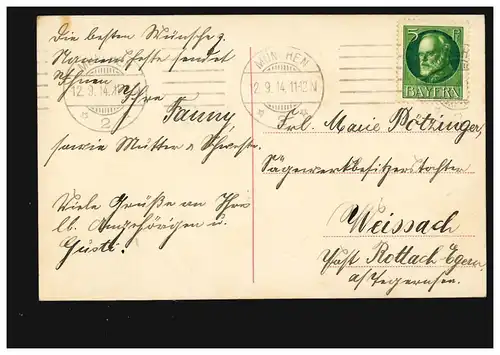 Die besten Wünsche z.
Namensfeste sendet
Ihnen Ihre
Fanny
sowie Mutter u. Schwester.
Viele Grüße an Ihre
lb. Angehörigen u.
Gusti.
MÜNCHEN
12.9.14.
2
MÜNCHEN
12.9.14.11-12N
5 P
BAYERN
Frl. Marie Pötzinger,
Sägewerkbesitzerstochter
Weissach
Post Rottach-Egern
a/Tegernsee.